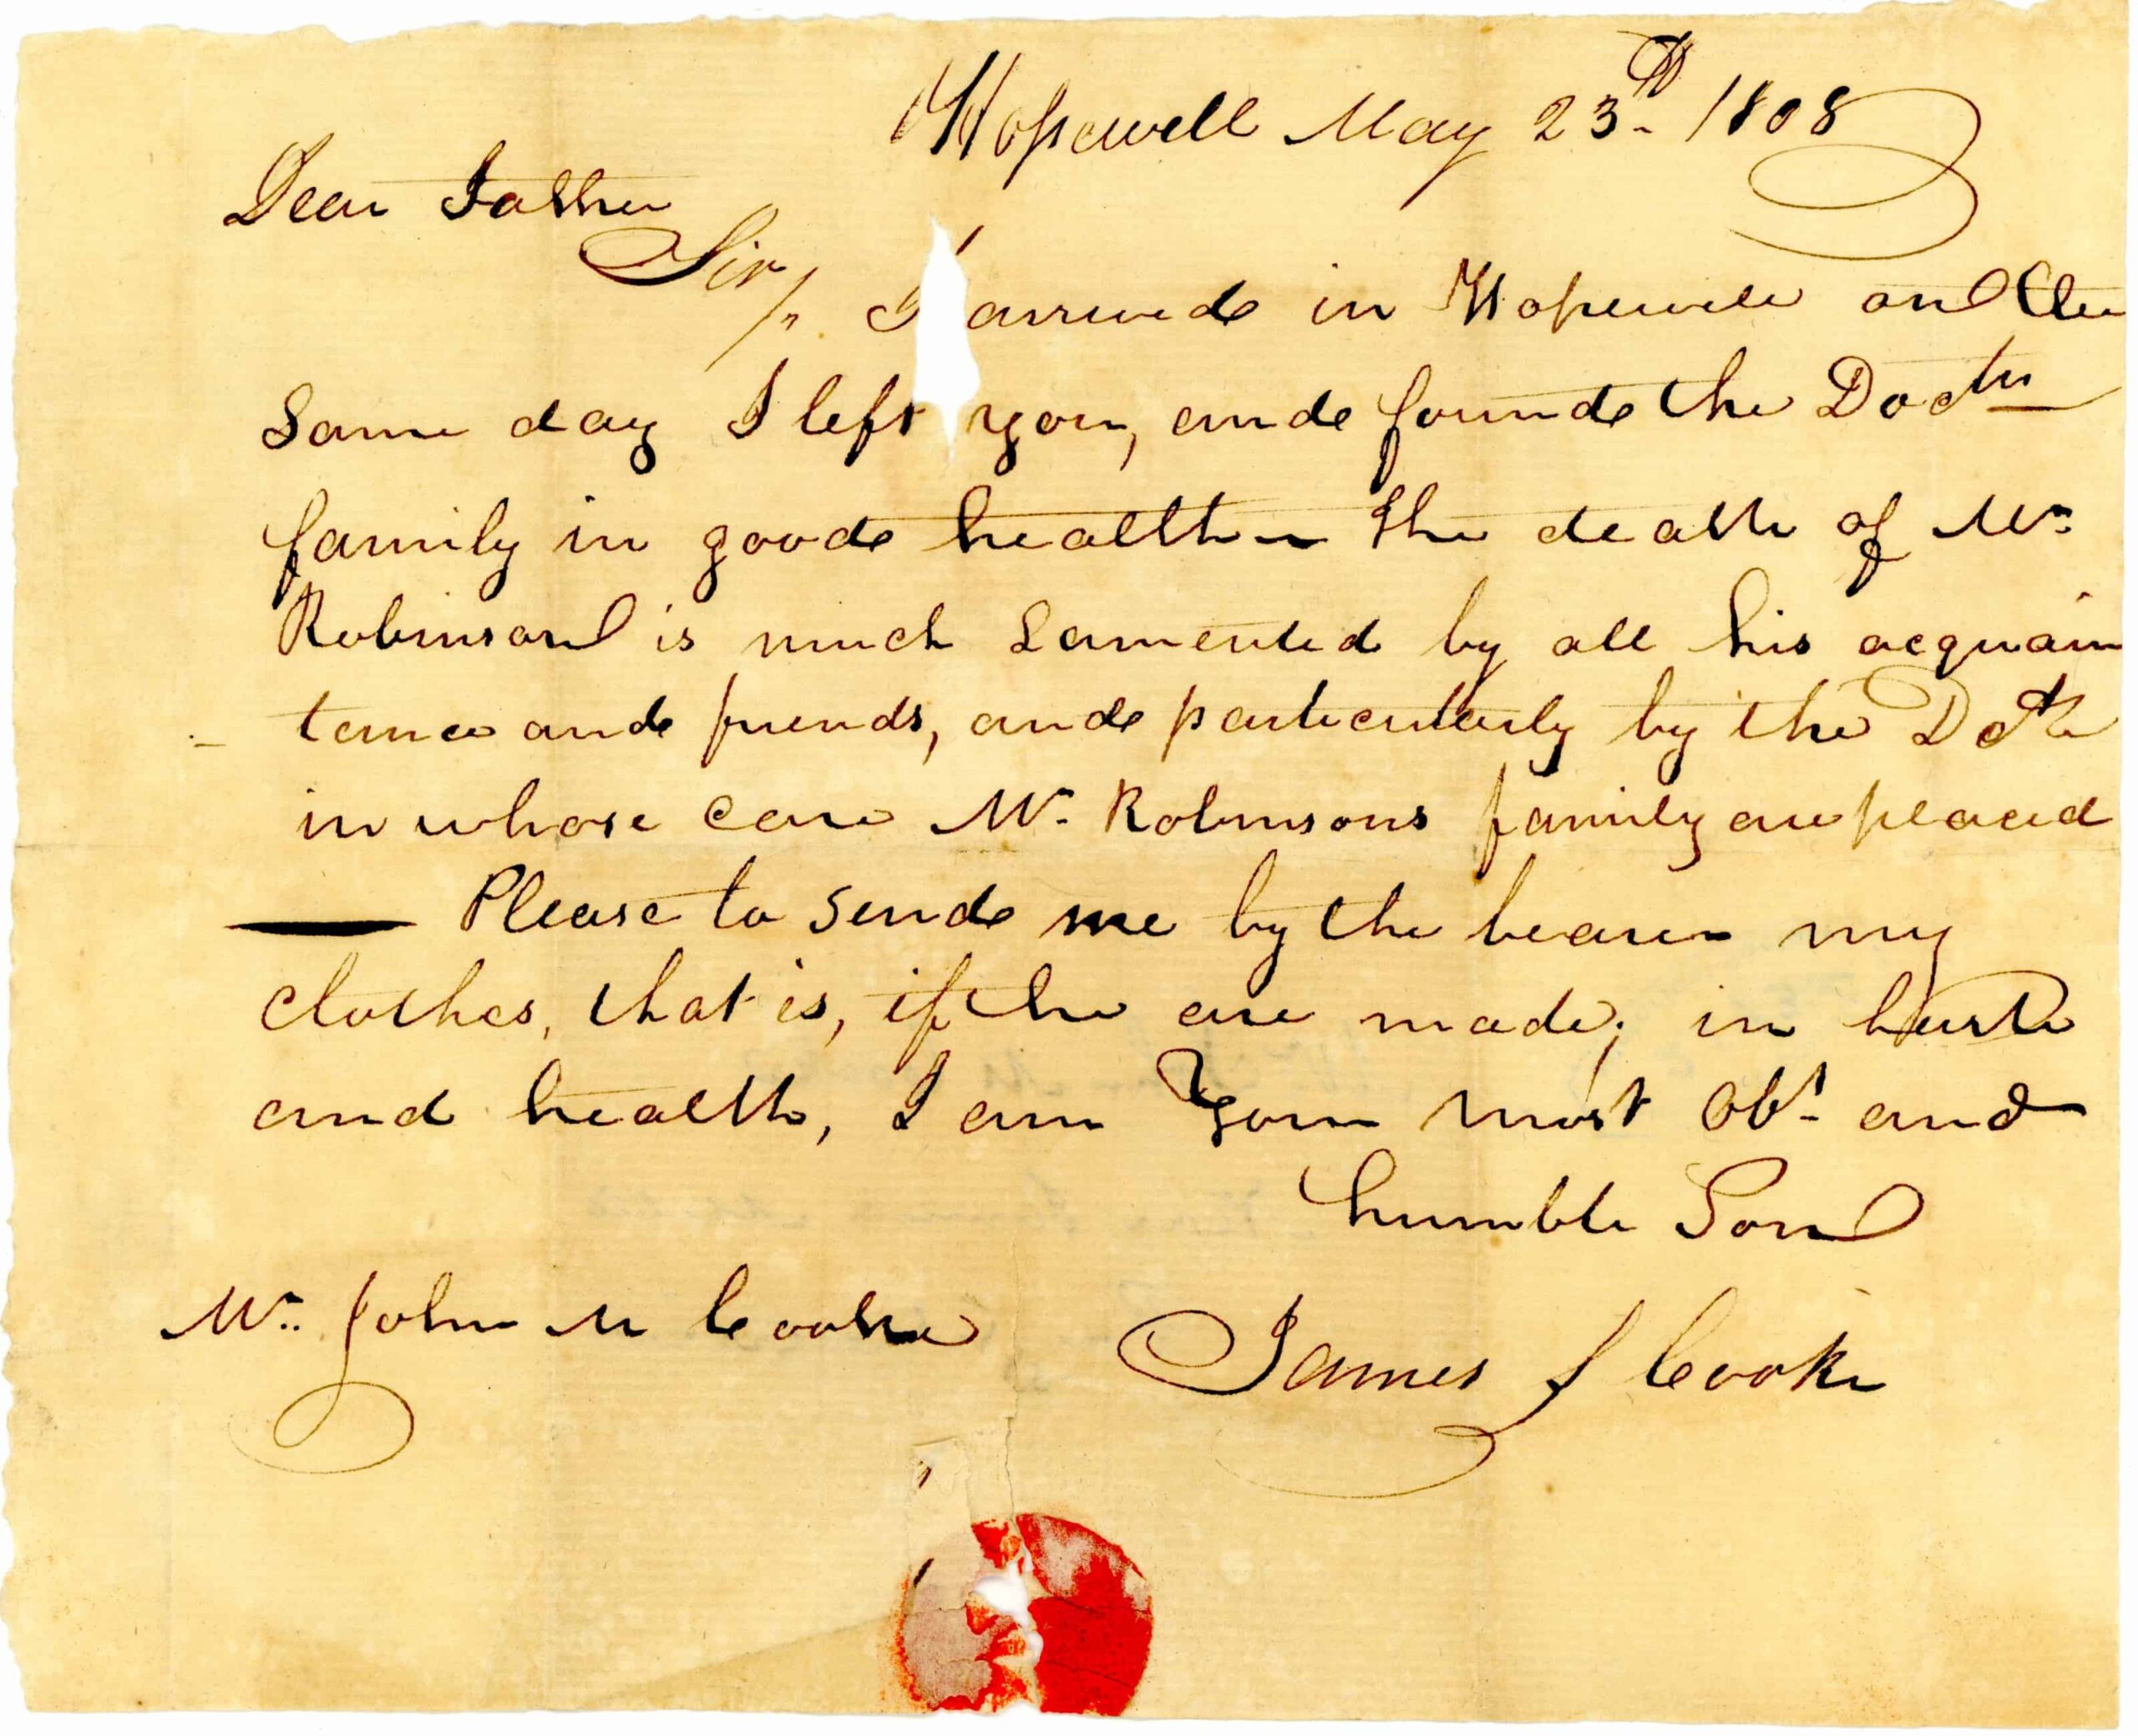 Hopewell May 23d. 1808
Dear Father
Sir, I arrived in Hopewell on the
Same day I left you, and found the Doctrs
family in good health - The death of Mr.
Robinson is much Lamented by all his acquain
- tance and friends, and particularly by the Doctr
in whose care Mr. Robinsons family are placed
— Please to send me by the bearer my
clothes, that is, if the are made; in haste
and health, I am Your most Obt. and
humble Son
Mr. John M Cooke
James J Cooke